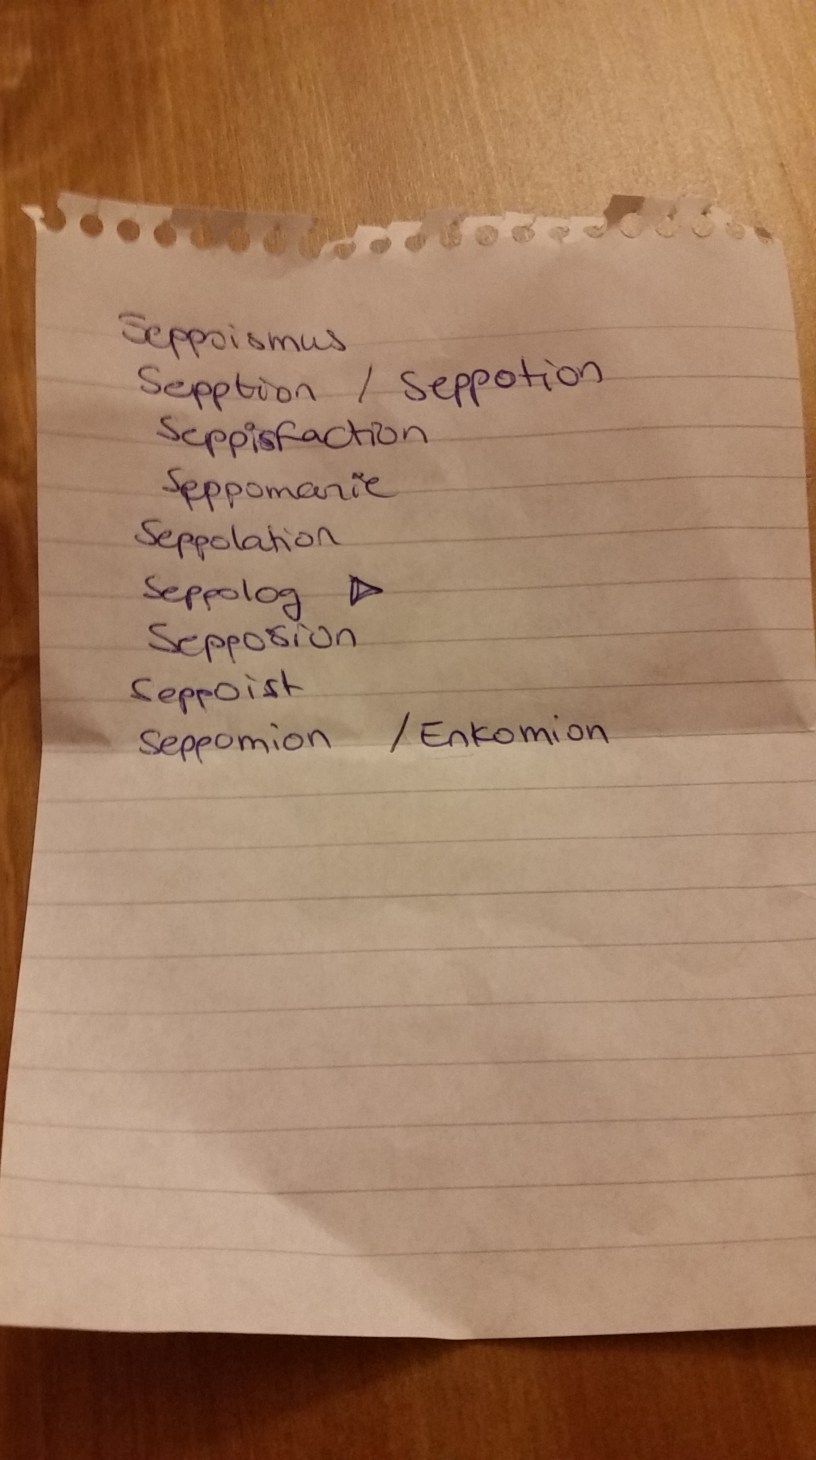 Seppoismus
Sepption / Seppotion
Seppisfaction
Seppomanie
Seppolation
Seppolog ▷
Épposion
Seppoist
Seppomion / Enkomion